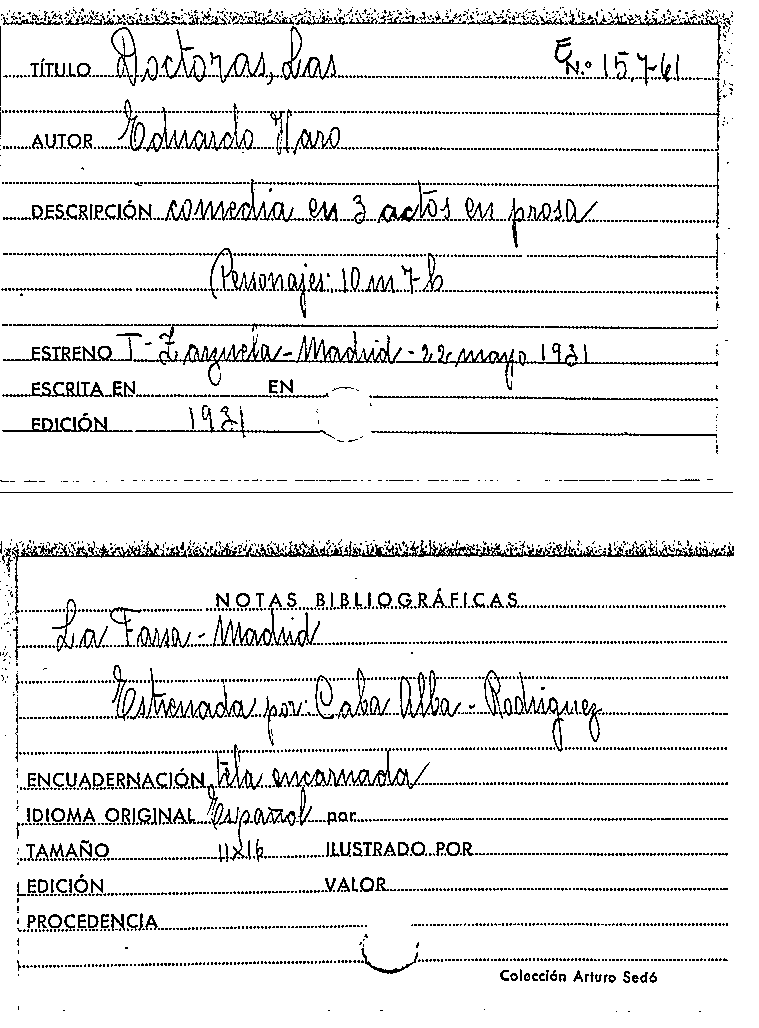 TÍTULO Doctoras, Las E N.º 15.7-61
AUTOR Eduardo Haro
DESCRIPCIÓN comedia en 3 actos en prosa
(Personajes: 10 m 7 h
ESTRENO T- Zarzuela - Madrid - 22 mayo 1931
ESCRITA EN EN
EDICIÓN 1931
NOTAS BIBLIOGRÁFICAS
La Farsa - Madrid
Estrenada por: Caba Alba - Rodriguez
ENCUADERNACIÓN tela encarnada
IDIOMA ORIGINAL Español por
TAMAÑO 11x16 ILUSTRADO POR
EDICIÓN VALOR
PROCEDENCIA
Colección Arturo Sedó